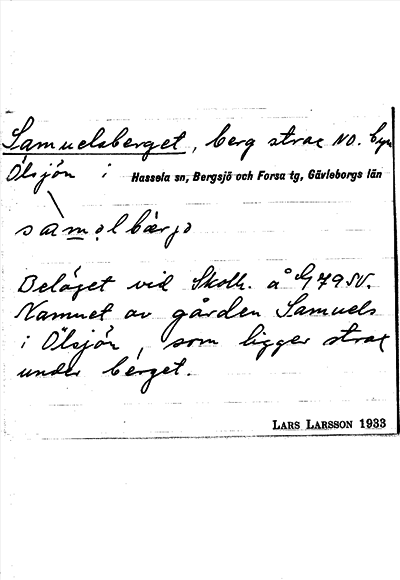 Samuelsberget, berg strax NO. byn
Ölsjön i Hassela sn, Bergsjö och Forsa tg, Gävleborgs län
Beläget vid Skolh. å 79 SV.
Namnet av gården Samuels
i Ölsjön, som ligger strax
under berget.
LARS LARSSON 1933